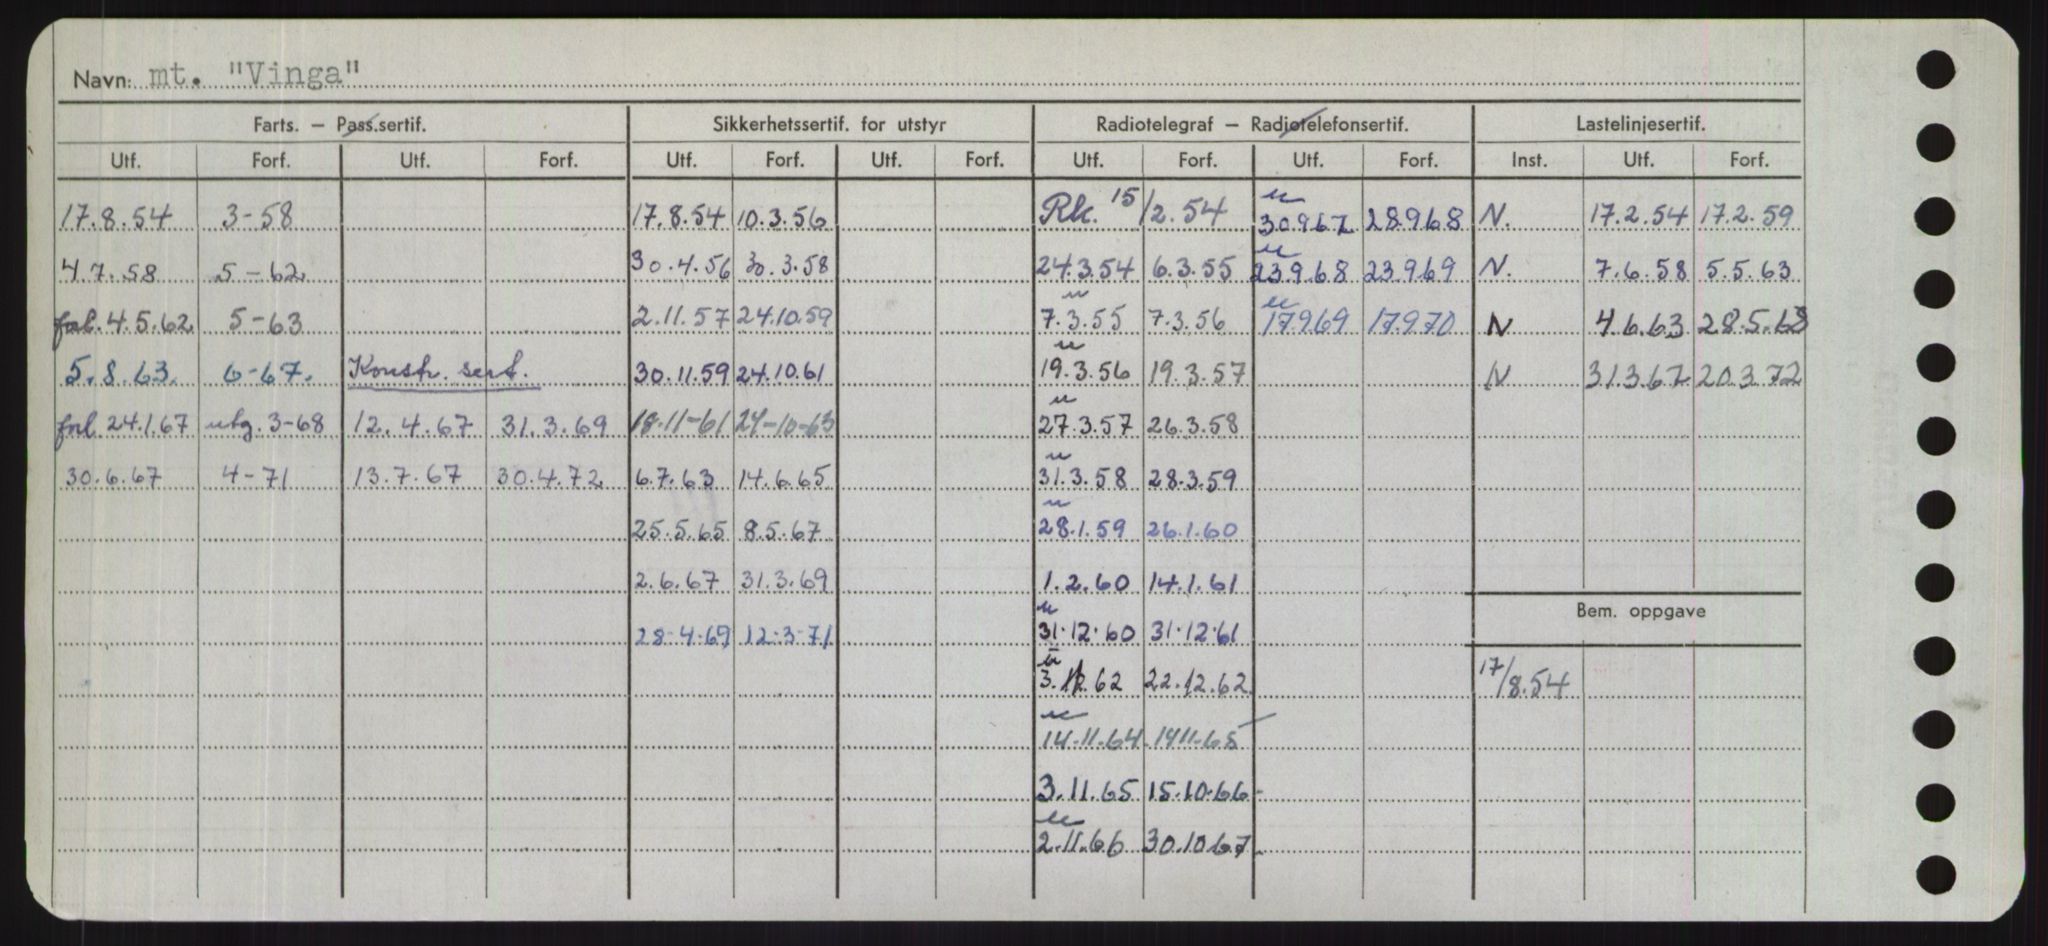 Navn: mt. "Vinga"
Farts. – Pass.sertif. Sikkerhetssertif. for utstyr Radiotelegraf – Radiotelefonsertif. Lastelinjesertif.
Utf. Forf. Utf. Forf. Utf. Forf. Utf. Forf. Utf. Forf. Utf. Forf. Inst. Utf. Forf.
17.8.54 3-58 17.8.54 10.3.56 Rk. 15/2.54 30.9.67 28.9.68 N. 17.2.54 17.2.59
4.7.58 5-62 30.4.56 30.3.58 24.3.54 6.3.55 23.9.68 23.9.69 N. 7.6.58 5.5.63
forl. 4.5.62 5-63 2.11.57 24.10.59 7.3.55 7.3.56 17.9.69 17.9.70 N 4.6.63 28.5.68
5.8.63. 6-67. Konstr. sert. 30.11.59 24.10.61 19.3.56 19.3.57 N 31.3.67 20.3.72
forl. 24.1.67 utg. 3-68 12.4.67 31.3.69 18-11-61 24-10-63 27.3.57 26.3.58
30.6.67 4-71 13.7.67 30.4.72 6.7.63 14.6.65 31.3.58 28.3.59
25.5.65 8.5.67 28.1.59 26.1.60
2.6.67 31.3.69 1.2.60 14.1.61
Bem. oppgave
28-4-69 12-3-71 31.12.60 31.12.61
62 22.12.62 17/8.54
14-11.64 1411-65
3.11.65 15.10.66
2.11.66 30.10.67